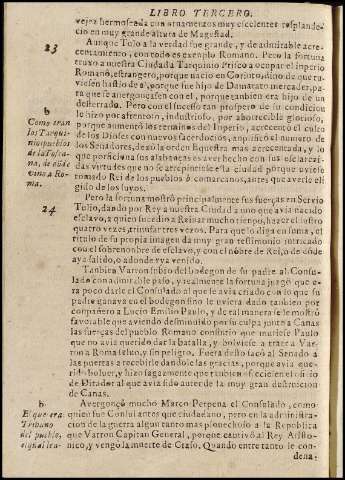 LIBRO TERCERO.
vejez hermoseada con ornamentos muy excelentes resplande-
cio en muy grande altura de Magestad.
23
Aunque Tolo a la verdad fue grande, y de admirable acre-
centamiento, con todo es exemplo Romano. Pero la fortuna
truxo a nuestra Ciudad a Tarquinio Prisco a ocupar el Imperio
Romano, estrangero, porque nacio en Corinto, dino de que tu-
viessen hastio del, porque fue hijo de Damarato mercader, pa-
ra que se avergonçassen con el, porque tambien era hijo de un
desterrado. Pero con el sucesso tan prospero de su condicion
le hizo por afrentoso, industrioso, por aborrecible glorioso,
b
Como eran
los Tarqui-
nios pueblos
de la Tosca-
na, de donde
vino a Ro-
ma.
porque aumentò los terminos del Imperio, acrecentò el culto
de los Dioses con nuevos sacerdocios, amplificò el numero de
los Senadores, dexò la orden Equestre mas acrecentada, y lo
que perficiona sus alabanças es aver hecho con sus esclareci-
das virtudes que no se arrepintiesse la ciudad porque uviesse
tomado Rei de los pueblos comarcanos, antes que averle ele-
gido de los suyos.
24
Pero la fortuna mostrò principalmente sus fuerças en Servio
Tulio, dando por Rey a nuestra Ciudad a uno que avia nacido
esclavo, a quien sucedio a Reinar mucho tiempo, hazer el lustro
quatro vezes, triunfar tres vezes. Para que lo diga en suma, el
titulo de su propia imagen da muy gran testimonio intricado
con el sobrenombre de esclavo, y con el nombre de Rei, de donde
aya salido, o adonde aya venido.
Tambien Varron subio del bodegon de su padre al Consu-
lado con admirable passo, y realmente la fortuna juzgò que e-
ra poco darle el Consulado al que se avia criado con lo que su
padre ganava en el bodegon sino le uviera dado tambien por
compañero a Lucio Emilio Paulo, y de tal manera se le mostrò
favorable que aviendo desminuido por su culpa junto a Canas
las fuerças del pueblo Romano consintio que muriesse Paulo
que no avia querido dar la batalla, y bolviesse a traer a Var-
ron a Roma salvo, sin peligro. Fuera desto sacò al Senado a
las puertas a recebirle dandole las gracias, porque avia que-
rido bolver, y hizo sagazmente que tambien se eciesse el oficio
de Ditador al que avia sido autor de la muy gran destruicion
de Canas.
b
El que era
Tribuno
del pueblo,
Avergonçò mucho Marco Perpena el Consulado, como
quien fue Consul antes que ciudadano, pero en la administra-
cion de la guerra algun tanto mas provechoso a la Republica
que Varron Capitan General, porque cautivò al Rey Aristo-
nico, y vengò la muerte de Craso. Quando entre tanto le con-
dena-